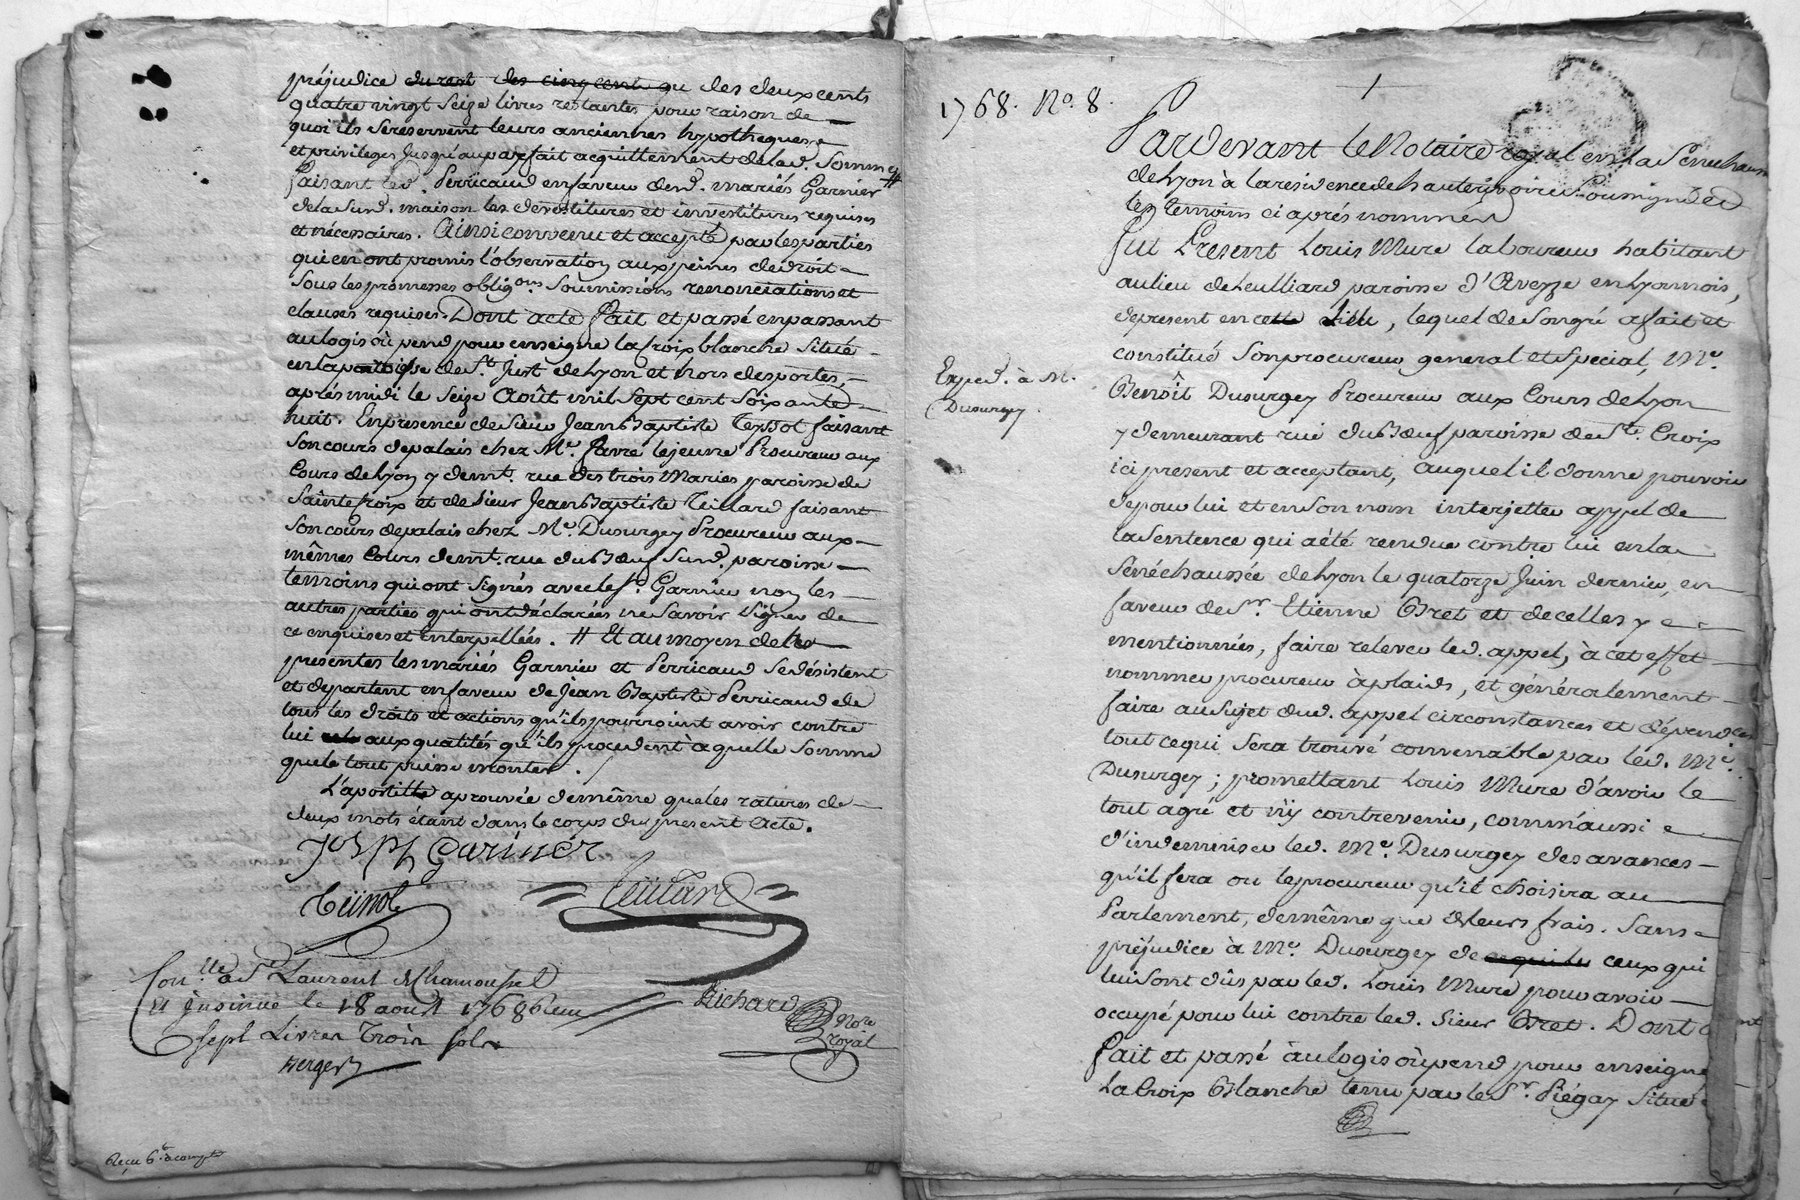 préjudice du rest des cinq cent qu des deux cents
quatre vingt seize livres restantes pour raison de
quoi ils se reservent leurs anciennes hypotheques
et privileges jusqu'au parfait acquittement de lad. Somme
faisant led. Perricaud en faveur desd. mariés Garnier #
de la susd. maison les devestitures et investitures requises
et nécessaires. Ainsi convenu et accepté par les parties
qui en ont promis l'observation aux peines de droit
sous les promesses oblig.ons Soumissions renonciations et
clauses requises. Dont acte fait et passé en passant
au logis où pend pour enseigne la Croix blanche situé
en la paroisse de St. Just de Lyon et hors des portes,
aprés midi le seize Août mil sept cent soixante
huit. En presence de Sieur Jean Baptiste Teyssot faisant
son cours de palais chez Me. Favre lejeune Procureur aux
Cours de Lyon y demt. rue des trois Maries paroisse de
Sainte Croix et de Sieur Jean Baptiste Teillard faisant
son cours de palais chez Me. Dusurgey Procureur aux
mêmes Cours demt. rue du Bœuf susd. paroisse
temoins qui ont signés avec led. Garnier non les
autres parties qui ont déclarées ne savoir signer de
ce enquises et interpellées. # Et au moyen de
presentes les mariés Garnier et Perricaud se désistent
et départent en faveur de Jean Baptiste Perricaud de
tous les droits et actions qu'ils pourroient avoir contre
lui aux qualités qu'ils procedent à quelle somme
que le tout puisse monter.
L'apostille aprouvée de même que les ratures de
deux mots étant dans le corps du present Acte.
Josph Garinér
Teissot
Teillard
Con.lle à St. Laurent de Chamousset
et insinué le 18 aout 1768
sept Livres Trois sols
Berger
Richard
Nore
royal
Reçu 6# acompte
1768. No. 8.
Exped. à M.
Dusurgey
1
Pardevant le Notaire royal en la Senechaussée
de Lyon à la residence de hauterivoire soussigné et
les temoins ci aprés nommés
fut Present Louis Mure laboureur habitant
au lieu de Leulliard paroisse d'Aveyze en Lyonnois,
de present en cette Lieu, lequel de son gré a fait et
constitué son procureur general et special, Me.
Benoît Dusurgey Procureur aux Cours de Lyon
y demeurant rue du Bœuf paroisse de Ste. Croix
ici present et acceptant, auquel il donne pouvoir
de pour lui et en son nom interjetter appel de
la Sentence qui a été rendue contre lui en la
Senéchaussée de Lyon le quatorze Juin dernier, en
faveur de Sr. Etienne Bret et de celles y
mentionnés, faire relever led. appel, à cet effet
nommer procureur à plaids, et généralement
faire au sujet dud. appel circonstances et dépendces
tout ce qui sera trouvé convenable par led. Me.
Dusurgey; promettant Louis Mure d'avoir le
tout agré et n'y contrevenir, comm'aussi
d'indemniser led. Me. Dusurgey des avances
qu'il fera ou le procureur qu'il choisira au
Parlement, de même que de leurs frais. Sans
préjudice à Me. Dusurgey de ceux qui
lui sont dûs par led. Louis Mure pour avoir
occupé pour lui contre led. Sieur Bret. Dont
fait et passé au logis où pend pour enseigne
La Croix Blanche tenu par le Sr. Piégay situé